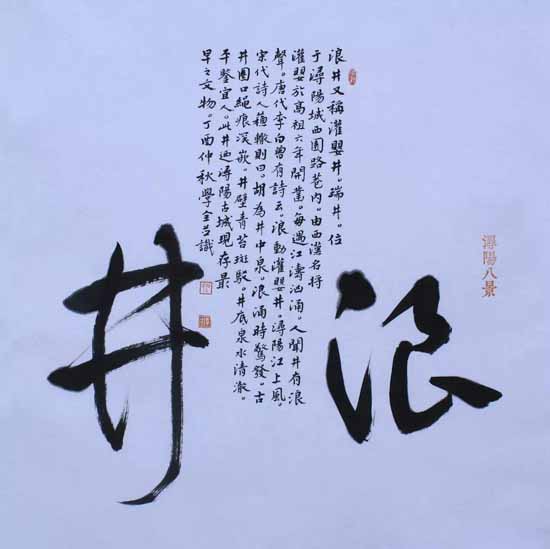 潯陽八景
浪井
浪井又稱灌嬰井。瑞井。位
于潯陽城西園路巷内。由西漢名将
灌嬰於高祖六年開鑿。每遇江濤汹涌。人聞井有浪
聲。唐代李白曾有詩云。浪動灌嬰井。潯陽江上風。
宋代詩人蘓轍則曰。胡為井中泉。浪涌時驚發。古
井圈口繩痕深嵌。井壁青苔斑駁。井底泉水清澈。
宜人。此井迺潯陽古城現存最
早之文物。丁酉仲秋學全識